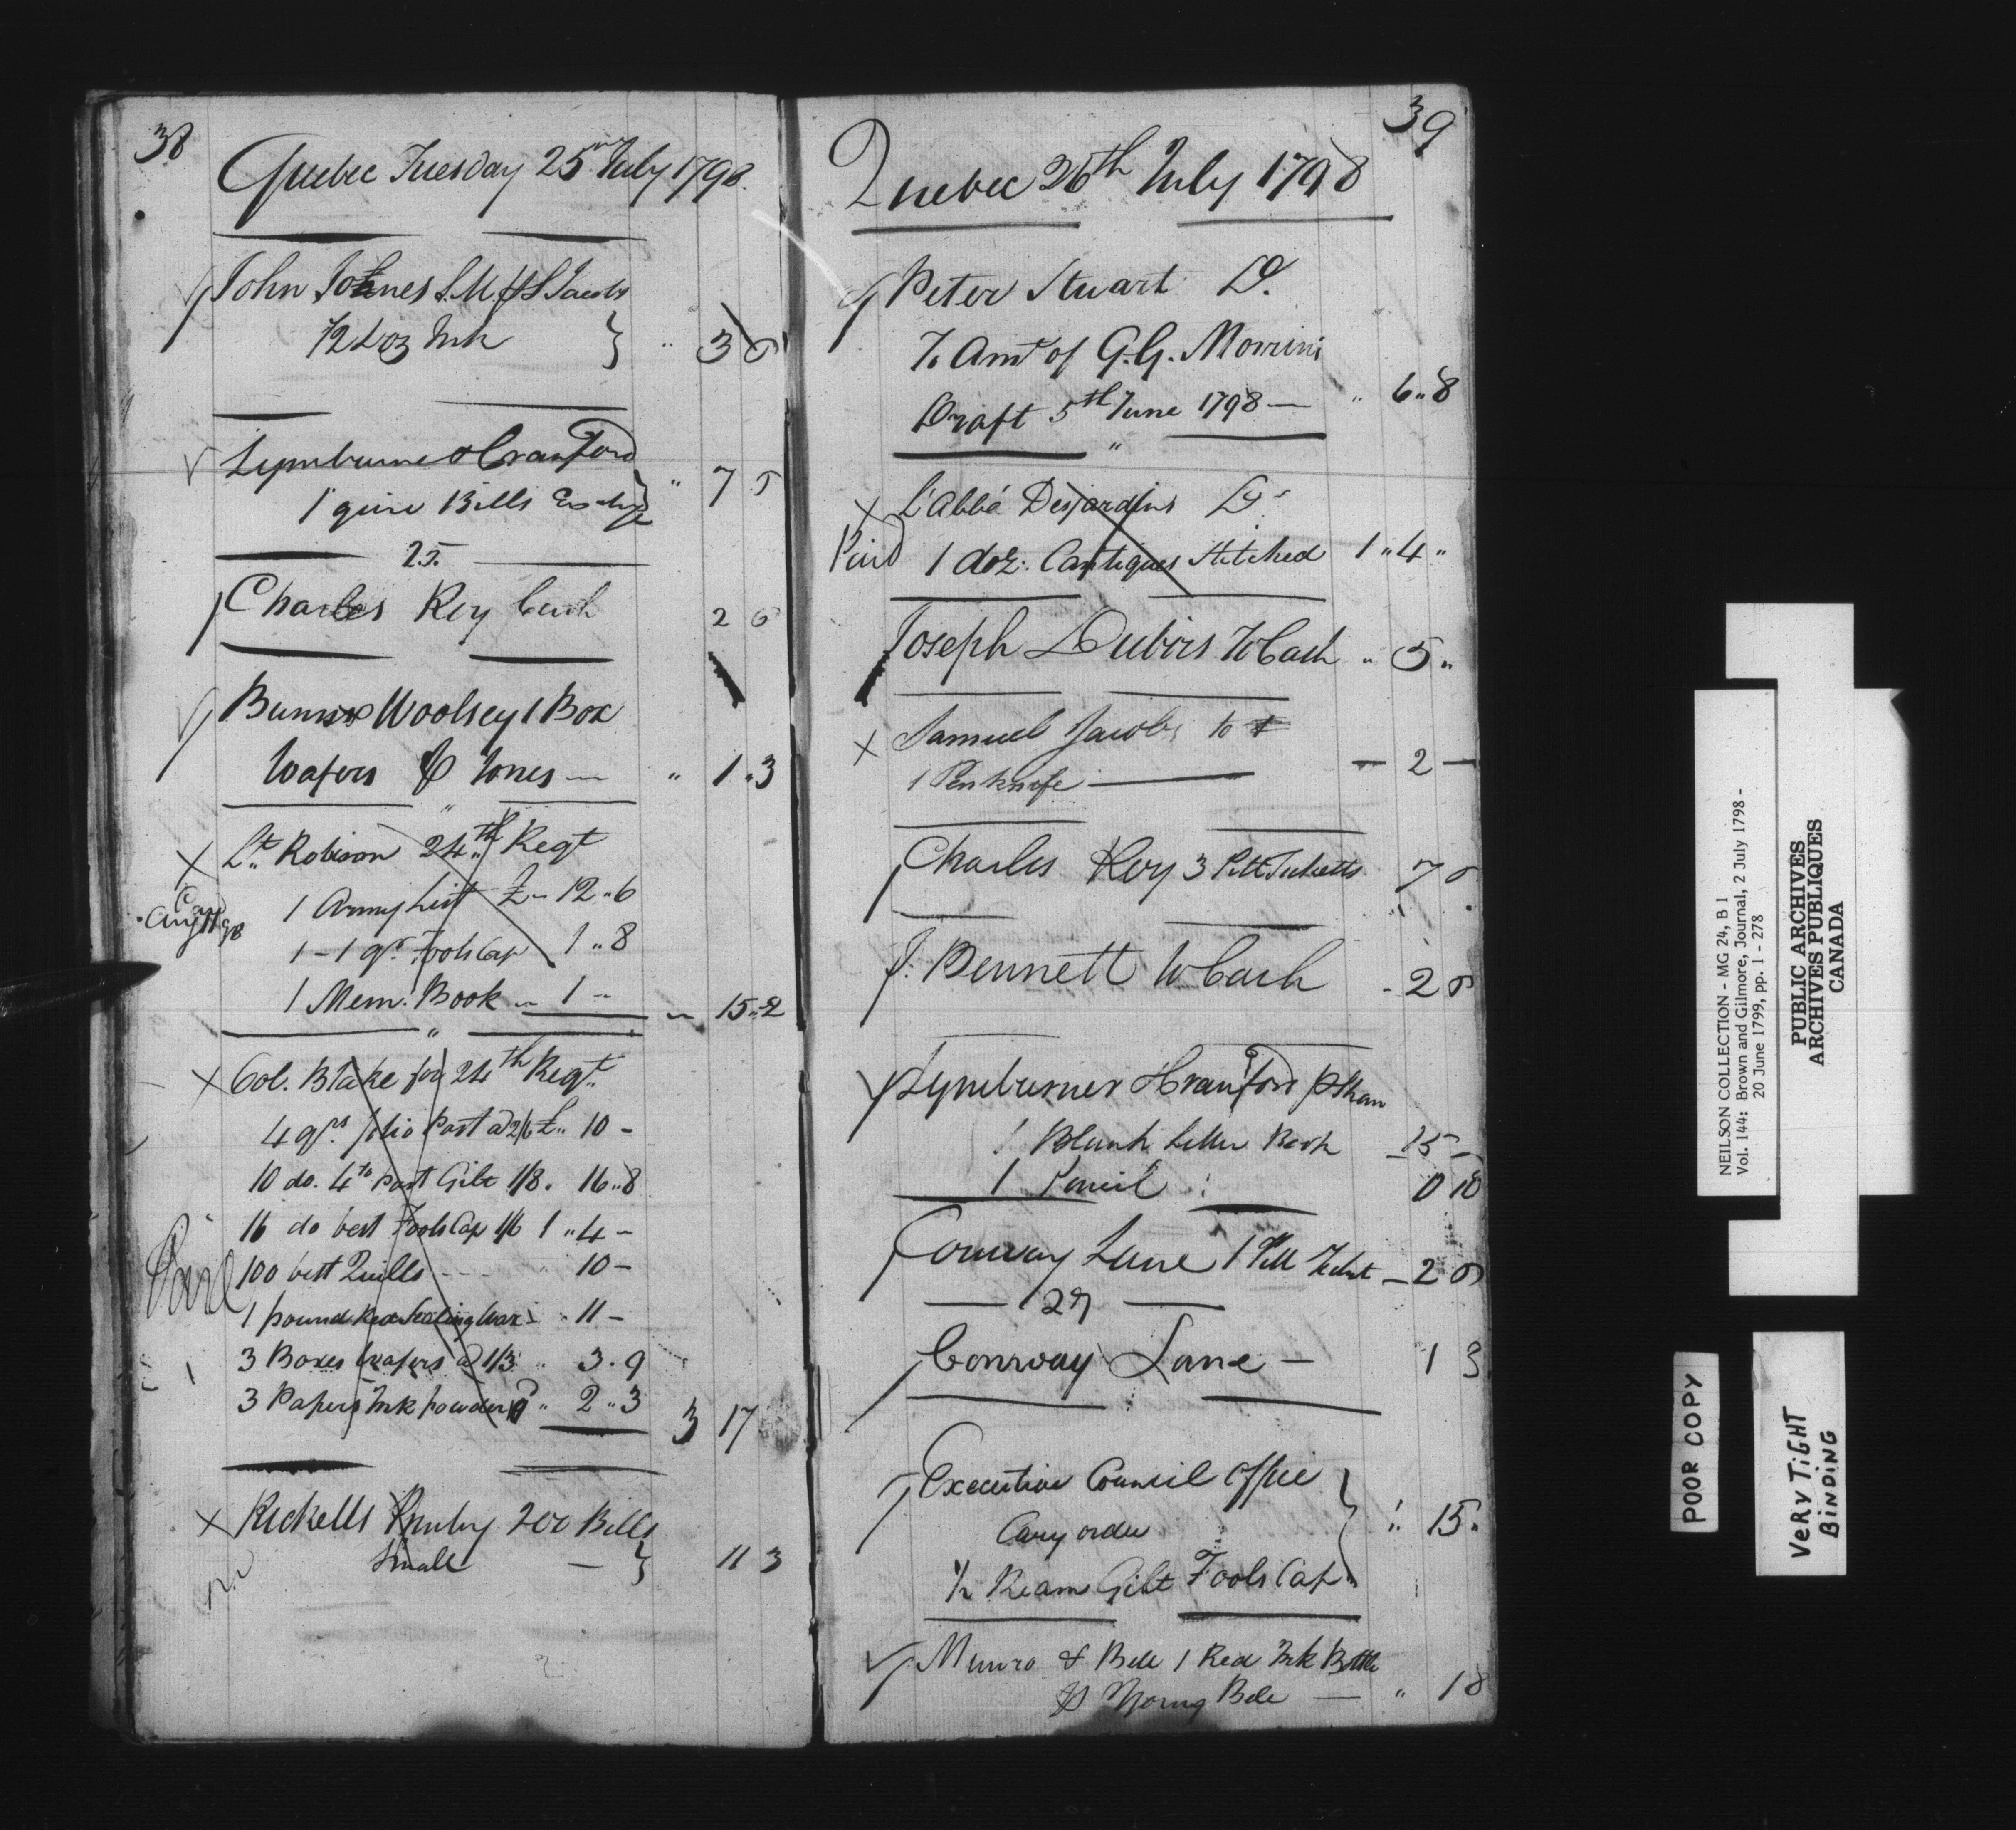 38
Quebec Tuesday 25th July 1798.
John Johnes S.M. Jacobs
1/2 doz Ink } " 3 6
Lymburne & Cranford
1 quire Bills Exchge } " 7 6
25.
Charles Roy Cash 2 6
Burns & Woolsey 1 Box
Wafers Jones — " 1 " 3
Lt. Robison 24th Regt
1 Army List £ " 12 " 6
Augt 98
1 - 1 qr. Fools Cap 1 " 8
1 Mem. Book - 1 - 15 " 2
Col. Blake for 24th Regt.
4 qrs folio Post a 2/6 £ " 10 -
10 do. 4to post Gilt 1/8. 16 " 8
16 do best Fools Cap 1/6 1 " 4 -
100 best Quills - - - " 10 -
Paid
1 pound Red Sealing Wax " 11 -
3 Boxes Wafers a 1/3 " 3 . 9
3 Papers Ink powder 9 " 2 " 3
3 17
Ricketts 200 Bills
Small — } 11 3
39
Quebec 26th July 1798
Peter Stuart Dr.
To Amt of G.G. Morrins
Draft 5th June 1798 — " 6 " 8
L'Abbé Desjardins Dr
Paid 1 doz. Cantiques Stitched 1 " 4 "
Joseph Dubois To Cash " 5 "
Samuel Jacobs to
1 Penknife — — 2 —
Charles Roy 3 Pitt Ticketts 7 6
J. Bennett to Cash - 2 6
Lymburner & Cranford
1 Blank Letter Book - 15 -
1 Pencil 0 10
Conway Lane 1 Pitt Ticket — 2 6
— 27 —
Conway Lane — 1 3
Executive Council Office
Cary order } " 15 "
1/2 Ream Gilt Fools Cap
Munro & Bell 1 Red Ink Bottle
Young Bell — " 1 8
NEILSON COLLECTION - MG 24, B 1
Vol. 144: Brown and Gilmore, Journal, 2 July 1798 -
20 June 1799, pp. 1 - 278
PUBLIC ARCHIVES
ARCHIVES PUBLIQUES
CANADA
POOR COPY
VERY TIGHT
BINDING